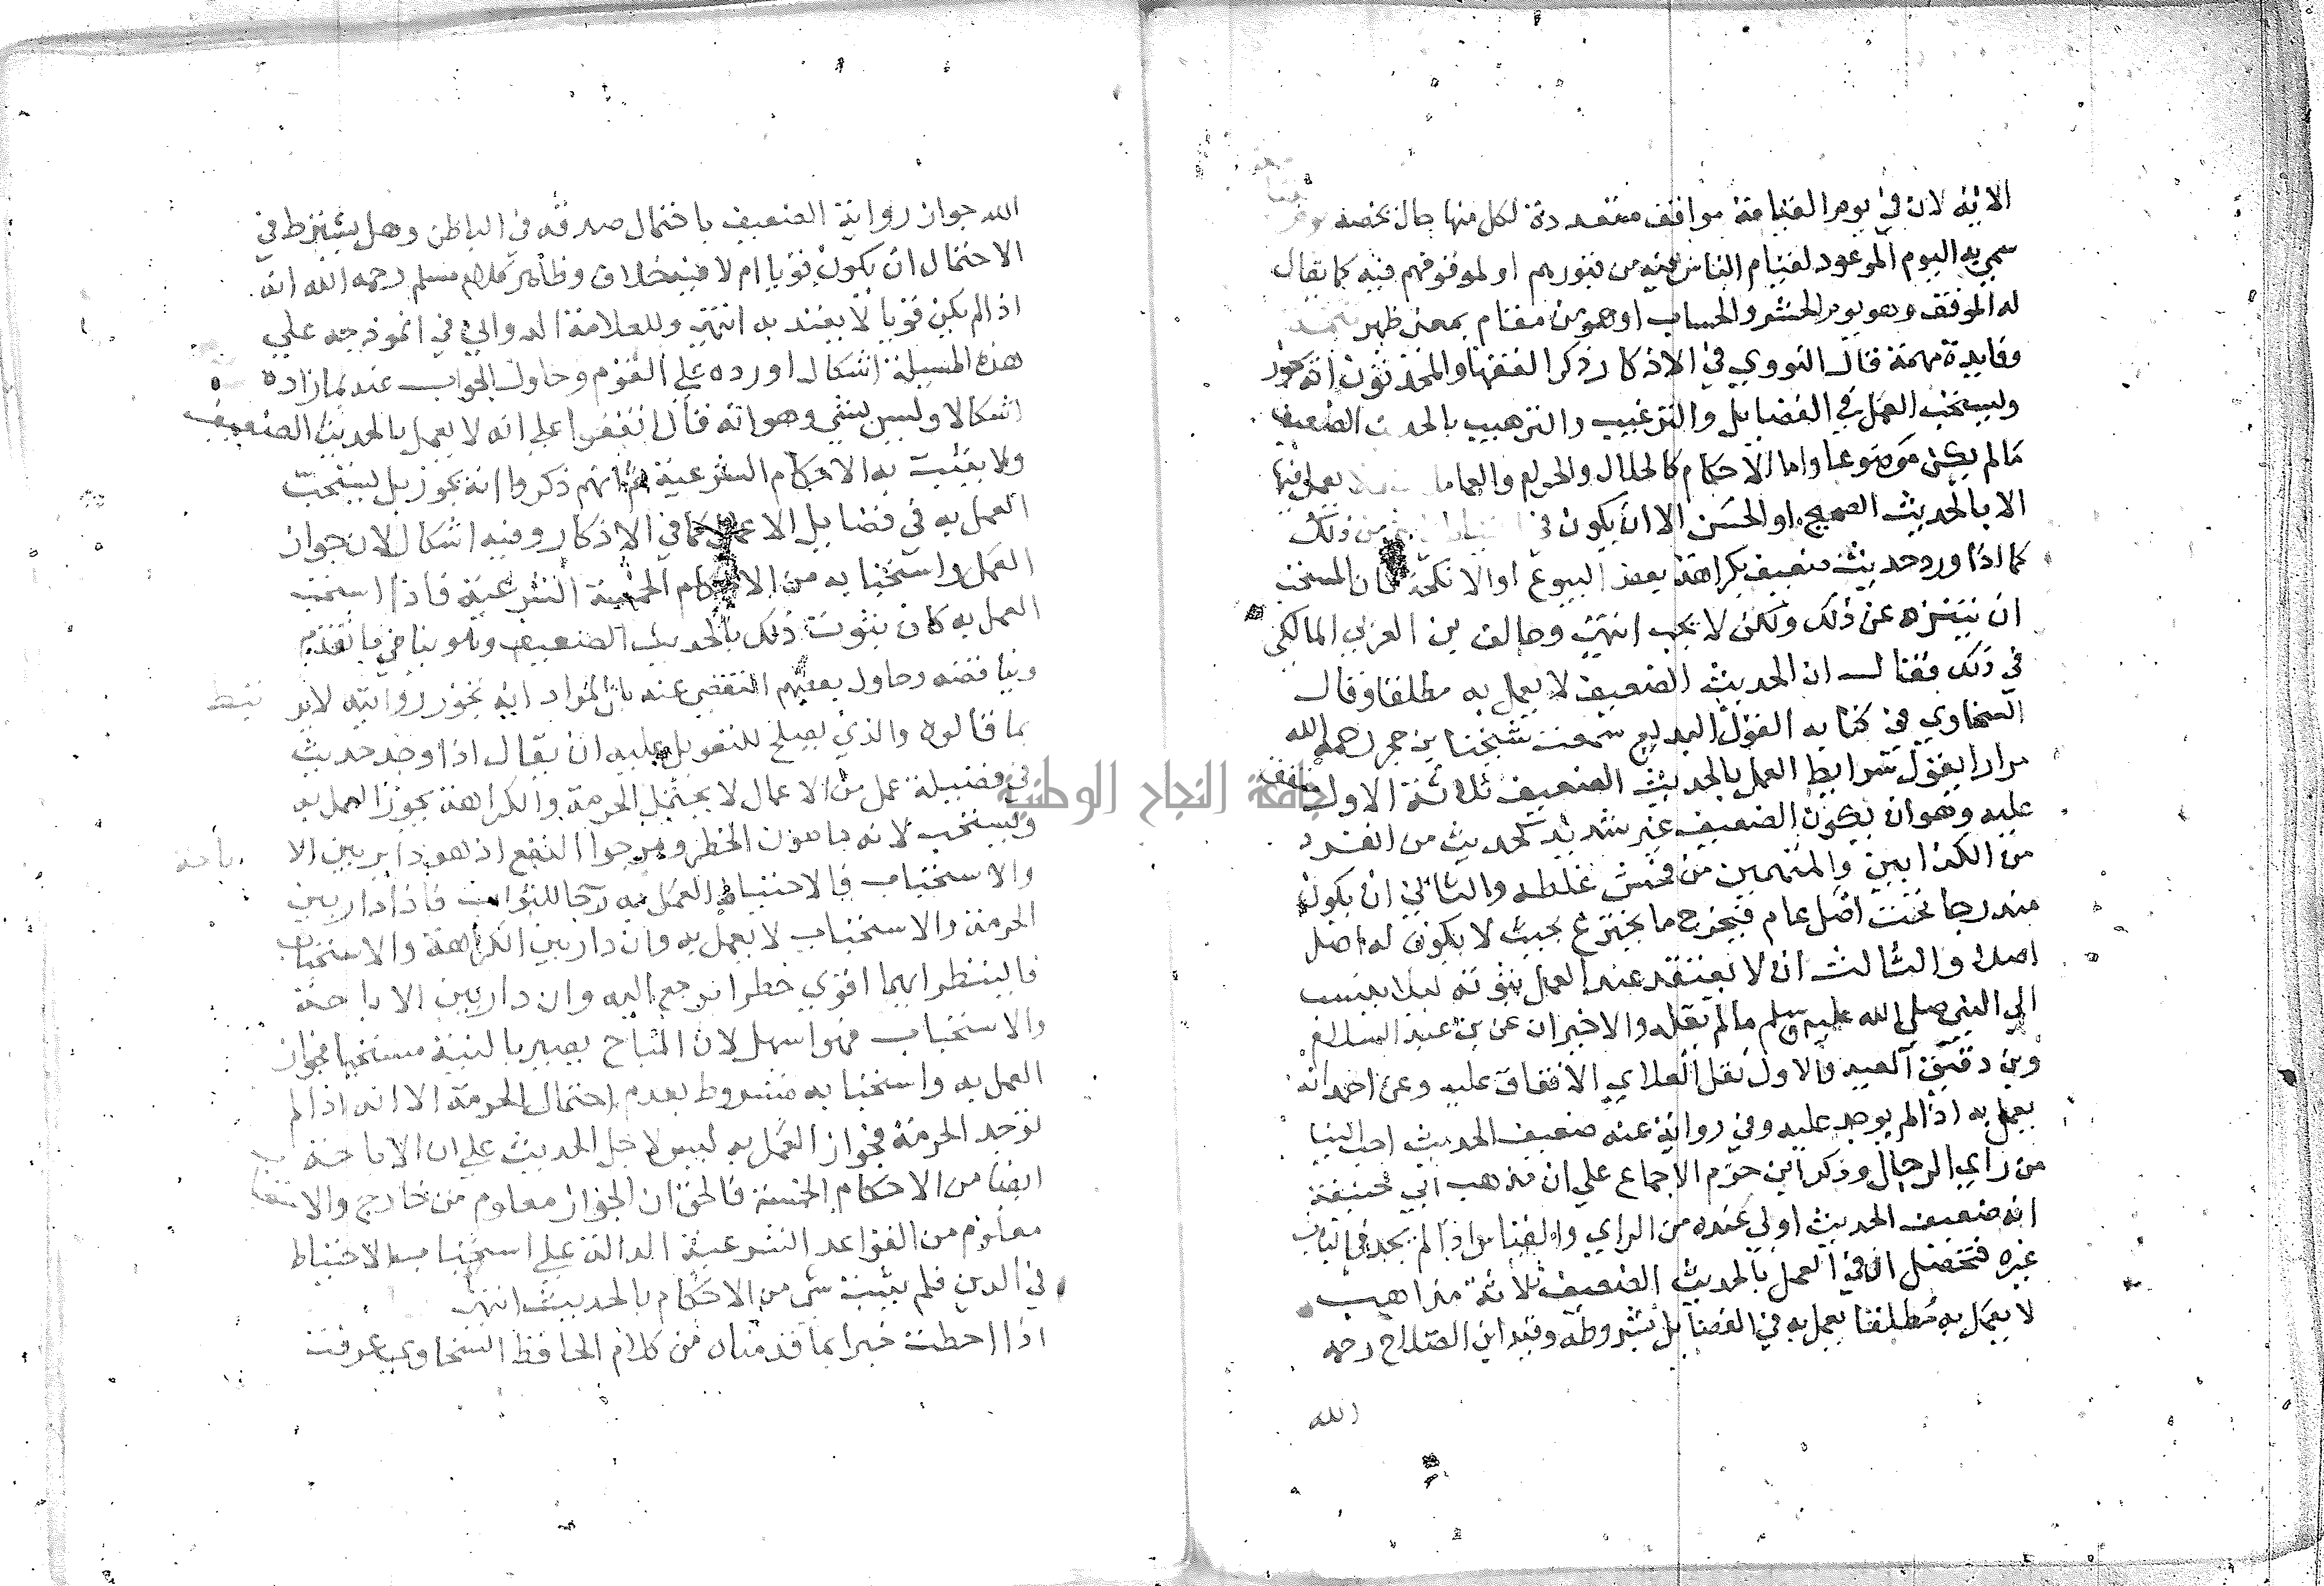 الاية لان في يوم القيامة مواقف متعددة لكل منها حال يخصه
سمي به اليوم الموعود لقيام الناس فيه من قبورهم او لموقوفهم فيه كما يقال
له الموقف وهو يوم الحشر والحساب او هو من مقام بمعنى ظهر
وفايدة مهمة قال النووي في الاذكار ذكر الفقها والمحدثون انه يجوز
ويستحب العمل في الفضايل والترغيب والترهيب بالحديث الضعيف
مالم يكن موضوعا واما الاحكام كالحلال والحرام والمعاملات فلا يعمل فيها
الا بالحديث الصحيح او الحسن الا ان يكون في من ذلك
كما اذا ورد حديث ضعيف بكراهة بعض البيوع او الانكحة فان المستحب
ان يتنزه عن ذلك ولكن لا يجب انتهى وخالف بن العربي المالكي
في ذلك فقال ان الحديث الضعيف لا يعمل به مطلقا وقال
السخاوي في كتابه القول البديع سمعت شيخنا بن حجر رحمه الله
مرارا يقول شرايط العمل بالحديث الضعيف ثلاثة الاول متفق
عليه وهو ان يكون الضعيف غير شديد كحديث من انفرد
من الكذابين والمتهمين من فحش غلطه والثاني ان يكون
مندرجا تحت اصل عام فيخرج ما يخترع بحيث لا يكون له اصل
اصلا والثالث ان لا يعتقد عند العمل ثبوته ليلا ينسب
الي النبي صلي الله عليه وسلم مالم يقله والاخيران عن بن عبد السلام
وبن دقيق العيد والاول نقل العلاي الاتفاق عليه وعن احمد انه
يعمل به اذا لم يوجد عليه وفي رواية عنه ضعيف الحديث احب الينا
من راي الرجال وذكر ابن حزم الاجماع علي ان مذهب ابي حنيفة
انه ضعيف الحديث اولي عنده من الراي والقياس اذا لم يجد في الباب
غيره فتحصل ان في العمل بالحديث الضعيف ثلاثة مذاهب
لا يعمل به مطلقا يعمل به في الفضايل بشروطه وقيد ابن الصلاح رحمه
الله
الله جواز رواية الضعيف باحتمال صدقه في الباطن وهل يشترط في
الاحتمال ان يكون قويا ام لا فيه خلاف وظاهر كلام مسلم رحمه الله انه
اذا لم يكن قويا لا يعتد به انتهى وللعلامة الدواني في انموذجه علي
هذه المسيلة اشكال اورده علي القوم وحاول الجواب عنه بما زاده
اشكالا وليس بشي وهو انه قال اتفقوا علي انه لا يعمل بالحديث الضعيف
ولا يثبت به الاحكام الشرعية ثم انهم ذكروا انه يجوز بل يستحب
العمل به في فضايل الاعمال كما في الاذكار وفيه اشكال لان جواز
العمل واستحبابه من الاحكام الخمسة الشرعية فاذا استحب
العمل به كان ثبوت ذلك بالحديث الضعيف وهو ينافي ما تقدم
ويناقضه وحاول بعضهم التفصي عنه بان المراد انه يجوز روايته لا يرتبط
بما قالوه والذي يصلح للتعويل عليه ان يقال اذا وجد حديث
في فضيلة عمل من الاعمال لا يحتمل الحرمة والكراهة يجوز العمل به
ويستحب لانه مامون الخطر ومرجوا النفع اذ هو داير بين الاباحة
والاستحباب فالاحتياط العمل به رجا للثواب فاذا دار بين
الحرمة والاستحباب لا يعمل به وان دار بين الكراهة والاستحباب
فالينظر ايهما اقوي خطرا فرجع اليه وان دار بين الاباحة
والاستحباب فهو اسهل لان المباح يصير بالنية مستحبا فجواز
العمل به واستحبابه مشروط بعدم احتمال الحرمة الا انه اذا لم
توجد الحرمة فجواز العمل به ليس لاجل الحديث علي ان الاباحة
ايضا من الاحكام الخمسة فالحق ان الجواز معلوم من خارج والاستحباب
معلوم من القواعد الشرعية الدالة علي استحباب الاحتياط
في الدين فلم يثبت شي من الاحكام بالحديث انتهى
اذا احطت خبرا بما قدمناه من كلام الحافظ السخاوي عرفت
جامعة النجاح الوطنية